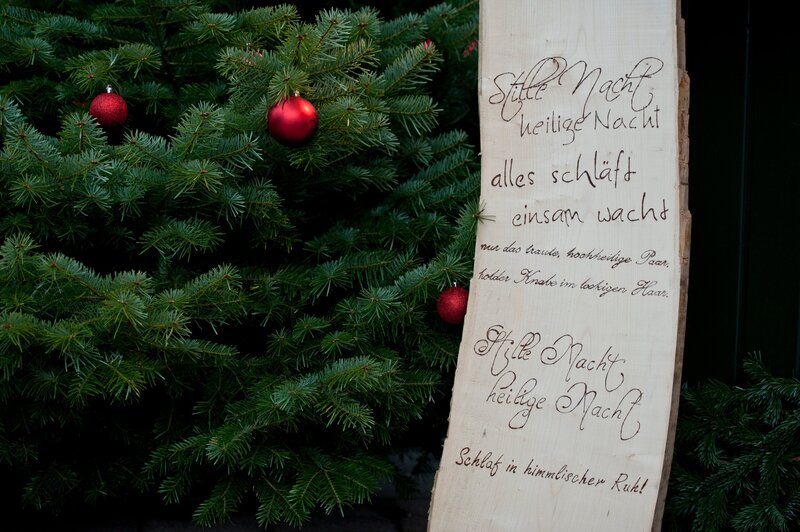 Stille Nacht,
heilige Nacht
alles schläft
einsam wacht
nur das traute, hochheilige Paar.
holder Knabe im lockigen Haar.
Stille Nacht,
heilige Nacht
Schlaf in himmlischer Ruh!